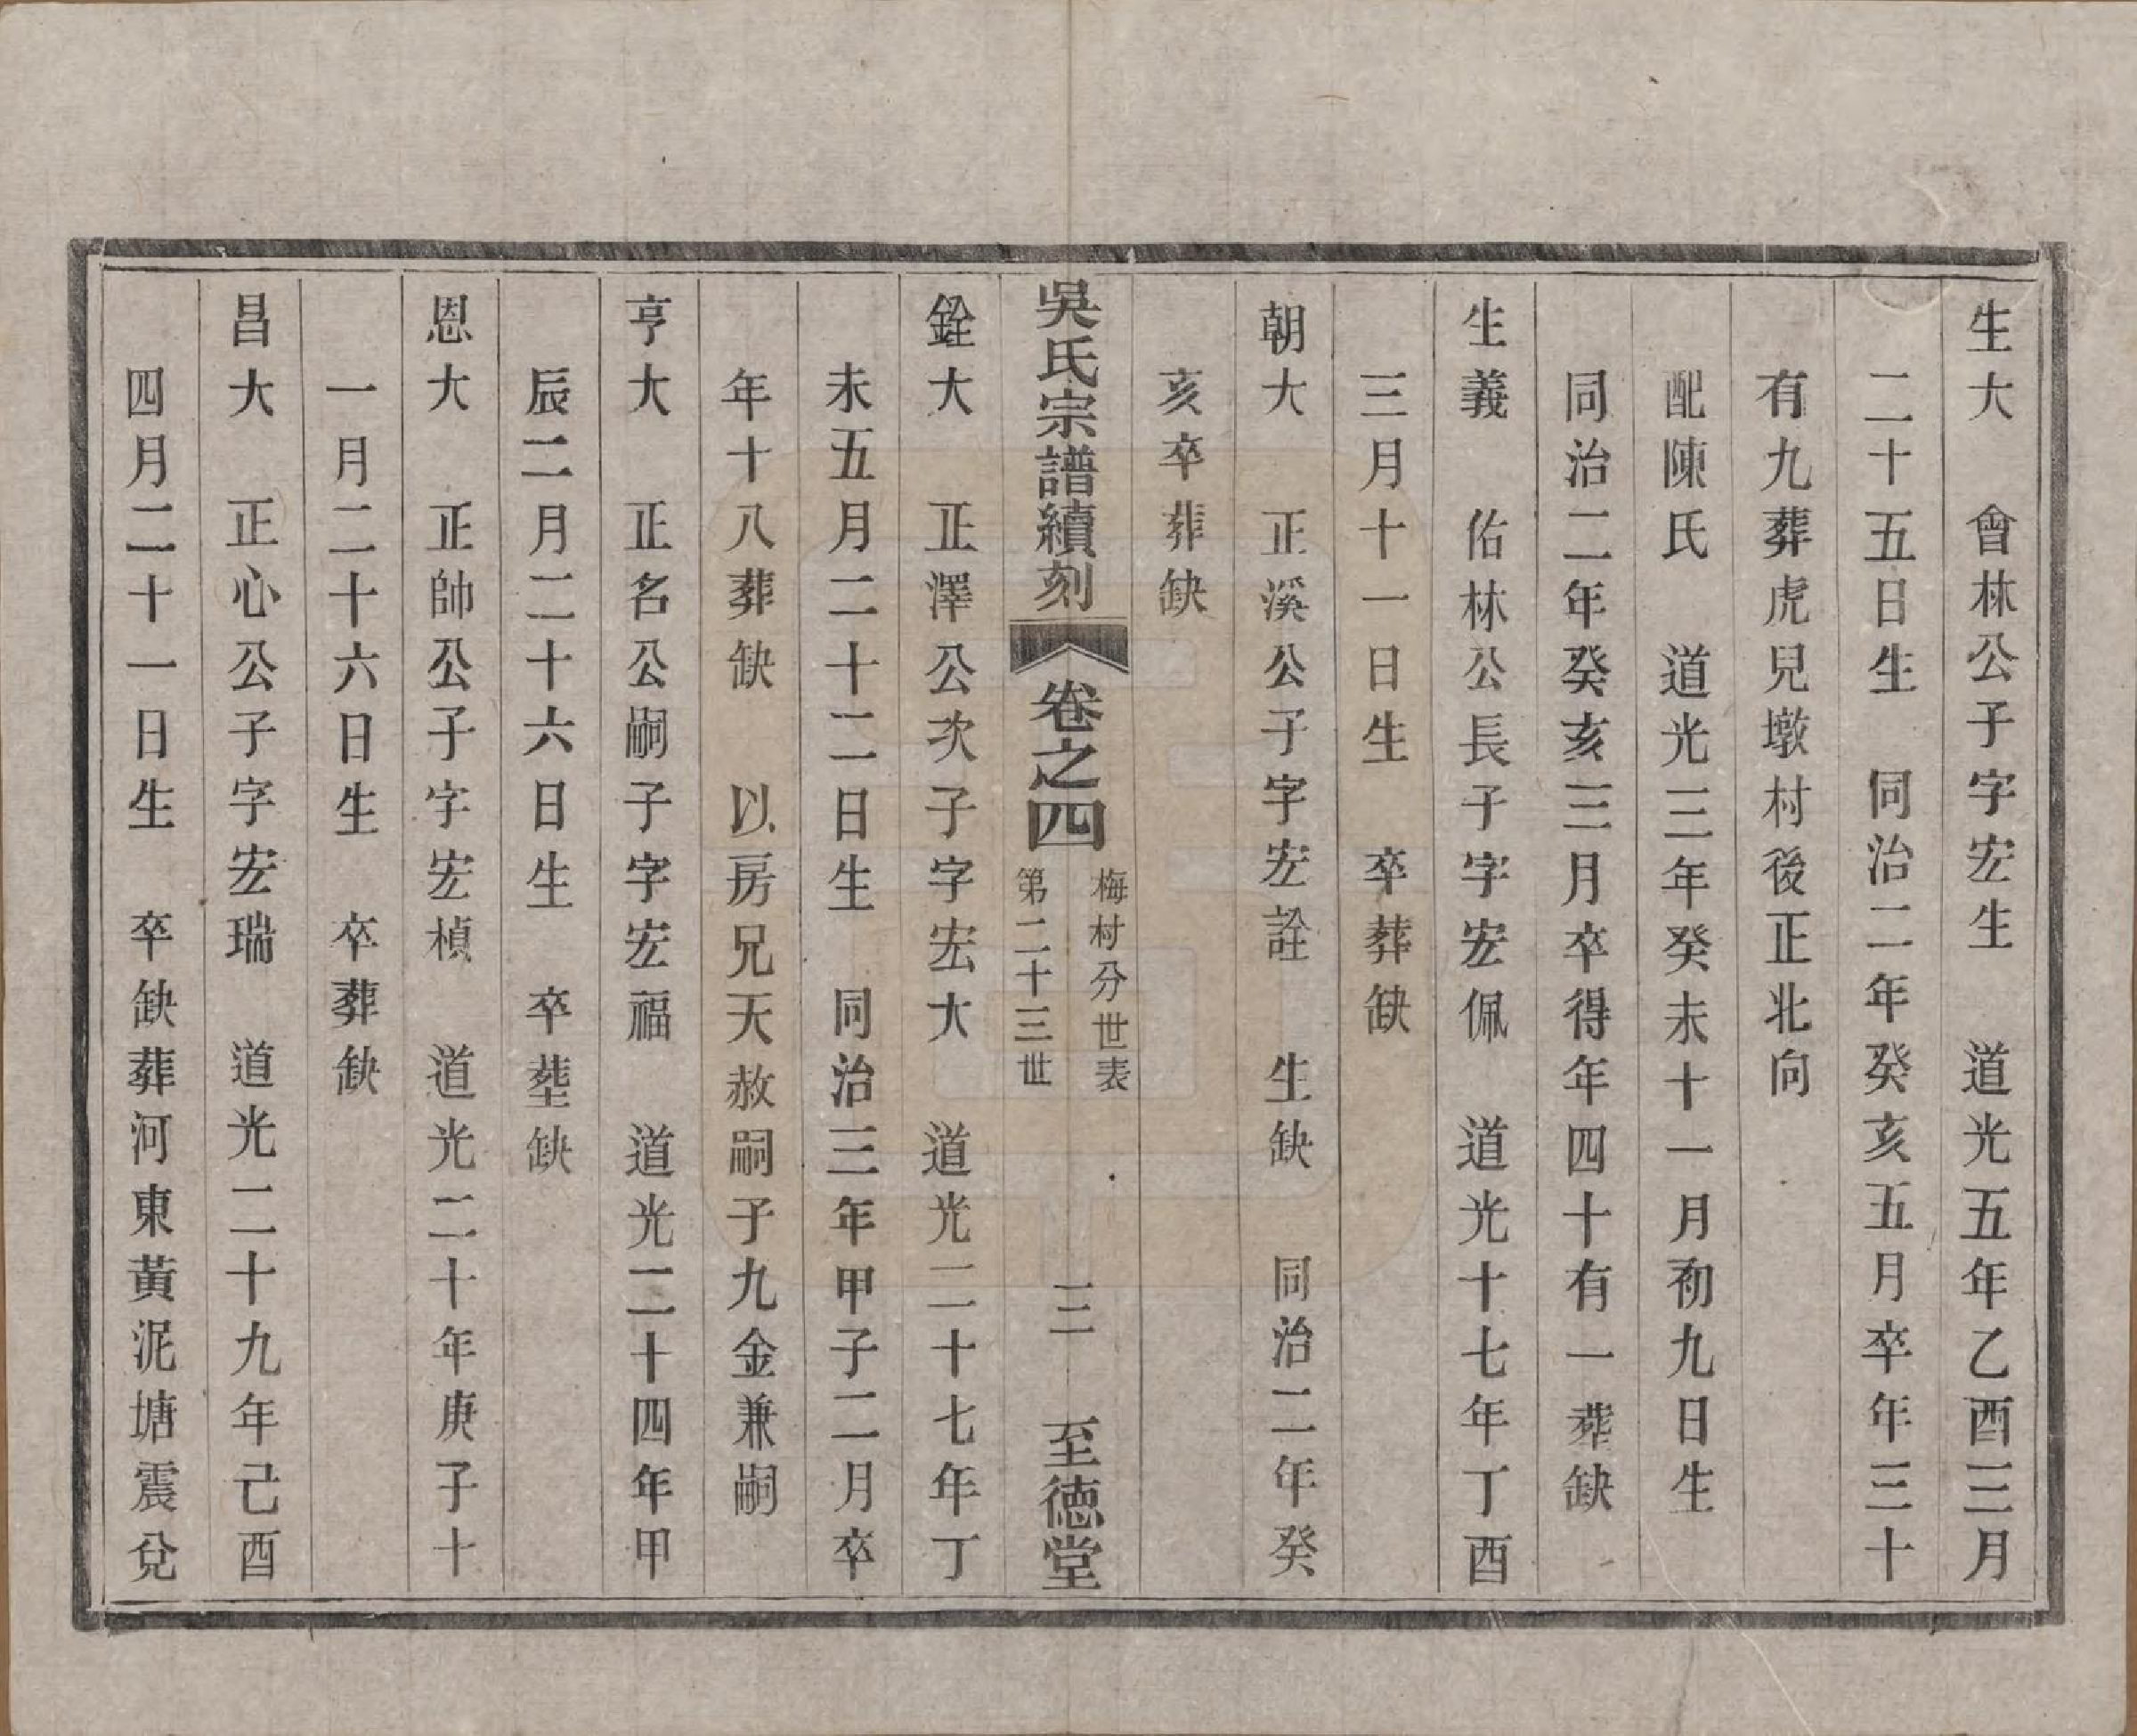 生大　會林公子字宏生　道光五年乙酉三月
二十五日生　同治二年癸亥五月卒年三十
有九葬虎兒墩村後正北向
配陳氏　道光三年癸未十一月初九日生
同治二年癸亥三月卒得年四十有一葬缺
生義　佑林公長子字宏佩　道光十七年丁酉
三月十一日生　卒葬缺
朝大　正溪公子字宏詮　生缺　同治二年癸
亥卒葬缺
吳氏宗譜續刻　卷之四　梅村分世表　第二十三世　三　至德堂
銓大　正澤公次子字宏大　道光二十七年丁
未五月二十二日生　同治三年甲子二月卒
年十八葬缺　以房兄天赦嗣子九金兼嗣
亨大　正名公嗣子字宏福　道光二十四年甲
辰二月二十六日生　卒塟缺
恩大　正帥公子字宏楨　道光二十年庚子十
一月二十六日生　卒葬缺
昌大　正心公子字宏瑞　道光二十九年己酉
四月二十一日生　卒缺葬河東黃泥塘震兌